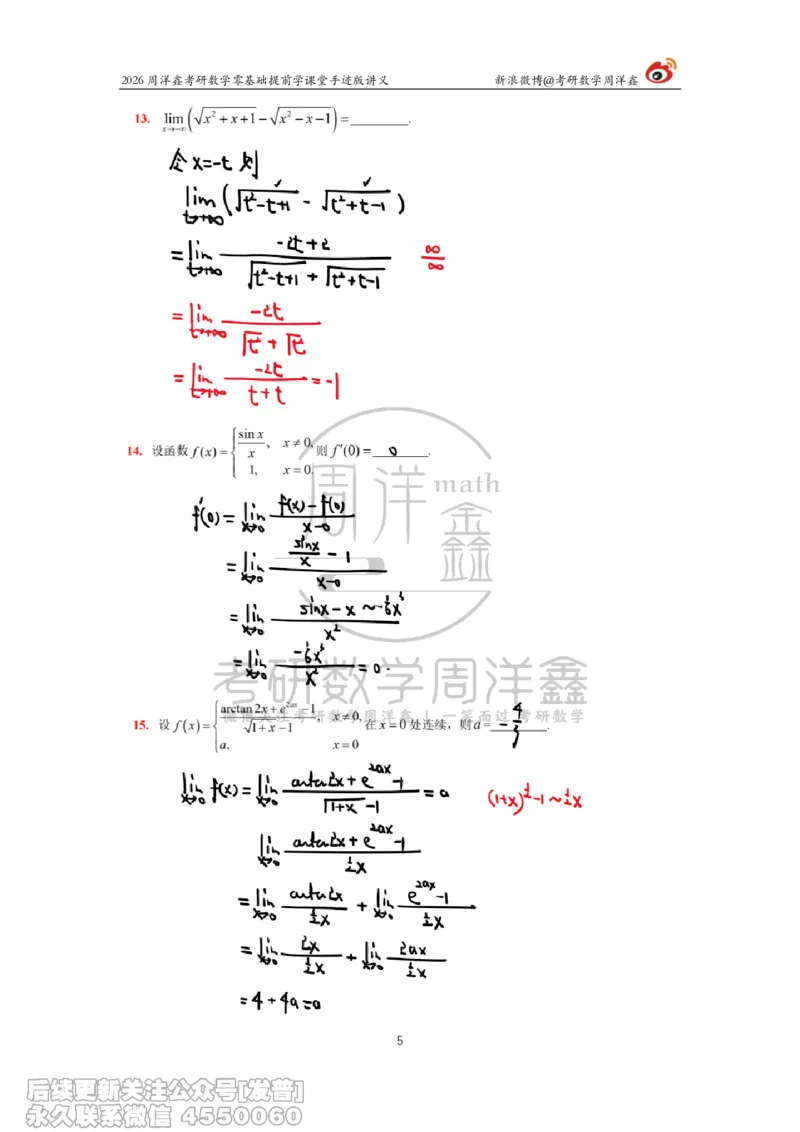 2026周洋鑫考研数学零基础提前学课堂手述版讲义 新浪微博@考研数学周洋鑫
13. lim x→-∞ (√(x²+x+1) - √(x²-x-1)) = ________.
令 x=-t 则
lim t→+∞ (√(t²-t+1) - √(t²+t-1))
= lim t→+∞ (-2t+2)/(√(t²-t+1) + √(t²+t-1)) ∞/∞
= lim t→+∞ -2t/(√t² + √t²)
= lim t→+∞ -2t/(t+t) = -1
14. 设函数 f(x) = { sin x / x, x≠0, 1, x=0. 则 f′(0) = 0.
f′(0) = lim x→0 (f(x)-f(0))/(x-0)
= lim x→0 (sinx/x - 1)/(x-0)
= lim x→0 (sinx-x ~ -1/6 x³)/x²
= lim x→0 (-1/6 x³)/x² = 0.
周洋鑫 math
考研数学周洋鑫
微博关注考研数学周洋鑫 | 一笑而过考研数学
15. 设 f(x) = { (arctan 2x + e^(2ax) - 1)/(√(1+x) - 1), x≠0, a, x=0 在 x=0 处连续，则 a = -4/3.
lim x→0 f(x) = lim x→0 (arctan2x + e^(2ax) - 1)/(√(1+x) - 1) = a (1+x)^(1/2) - 1 ~ 1/2 x
lim x→0 (arctan2x + e^(2ax) - 1)/(1/2 x)
= lim x→0 arctan2x/(1/2 x) + lim x→0 (e^(2ax) - 1)/(1/2 x)
= lim x→0 2x/(1/2 x) + lim x→0 2ax/(1/2 x)
= 4 + 4a = a
5
后续更新关注公众号[发普]
永久联系微信 4550060